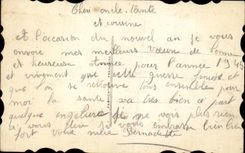 Cher oncle, tante
et cousine
et l'occasion du nouvel an je vous
envoie mes meilleurs vœux de bonne
et heureuse Année pour l'année 1945
et vivement que cette guerre finisse et
que on se retrouve tous ensemble pour
moi la santé va très bien a part
quelque engelure je ne vois plus rien
à vous dire je vous embrasse bien bien
fort votre nièce Bernadette